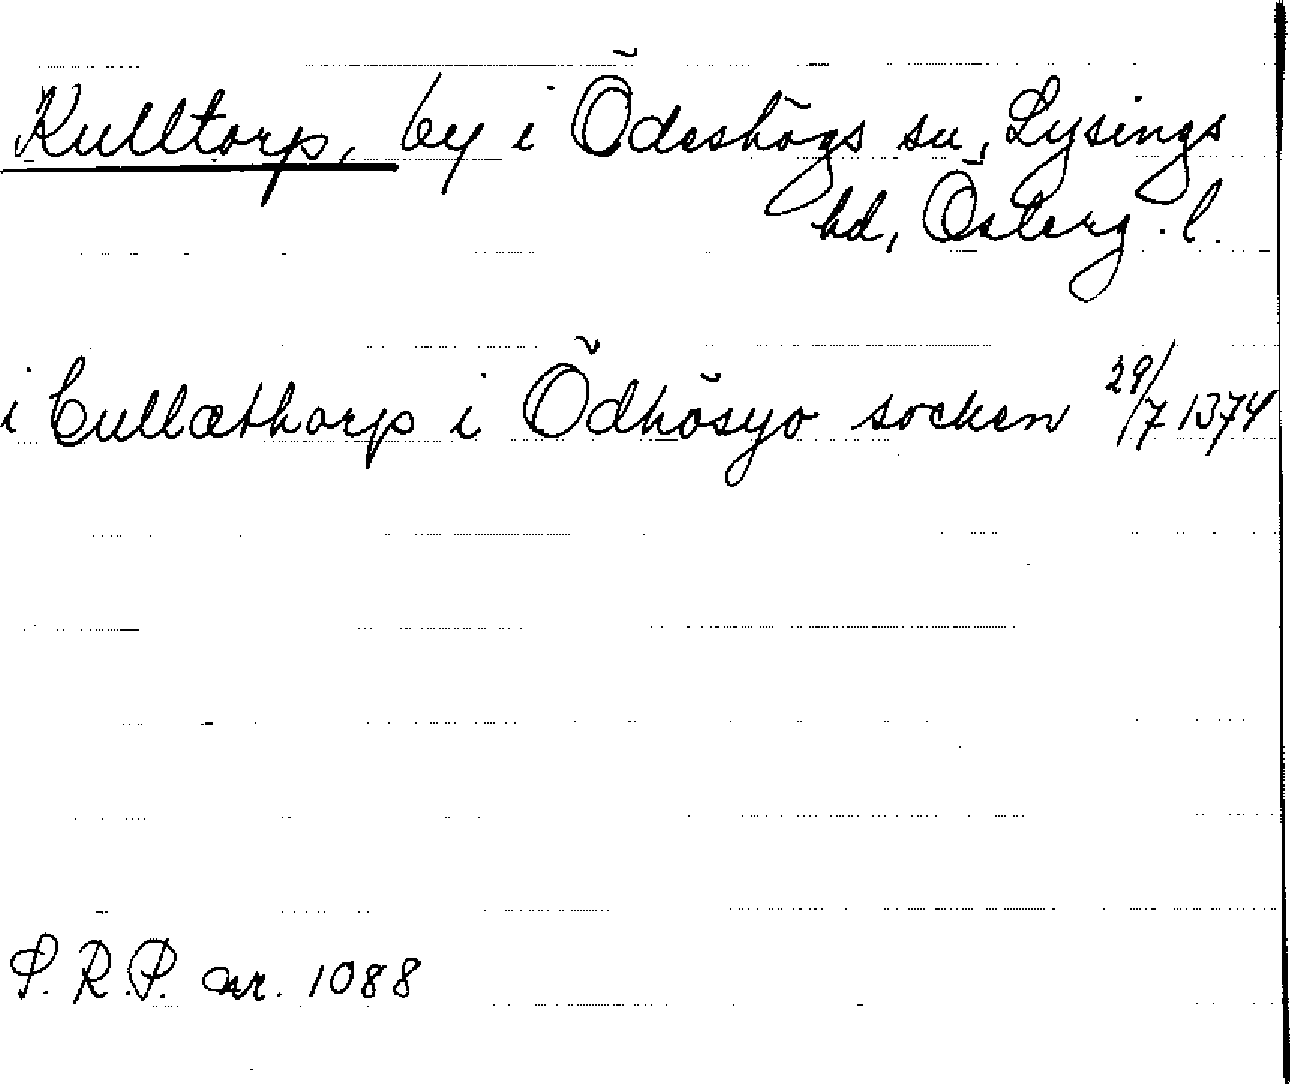 Kulltorp, by i Ödeshögs sn, Lysings
hd, Österg. l.
i Cullæthorp i Ödhösyo socken 29/7 1374
S. R. P. nr. 1088